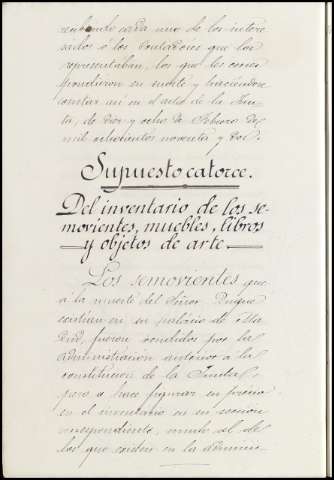 recibiendo cada uno de los intere-
sados ó los Contadores que los
representaban, los que les corres-
pondieron en suerte y haciéndose
constar así en el acta de la Jun-
ta, de diez y ocho de Febrero de
mil ochocientos noventa y dos.
Supuesto catorce.
Del inventario de los se-
movientes, muebles, libros
y objetos de arte.
Los semovientes que
á la muerte del Señor Duque
existían en su palacio de Ma-
drid, fueron vendidos por la
administración anterior á la
constitución de la Junta
pero se hace figurar su precio
en el inventario en su sección
correspondiente, unido al de
los que existen en la